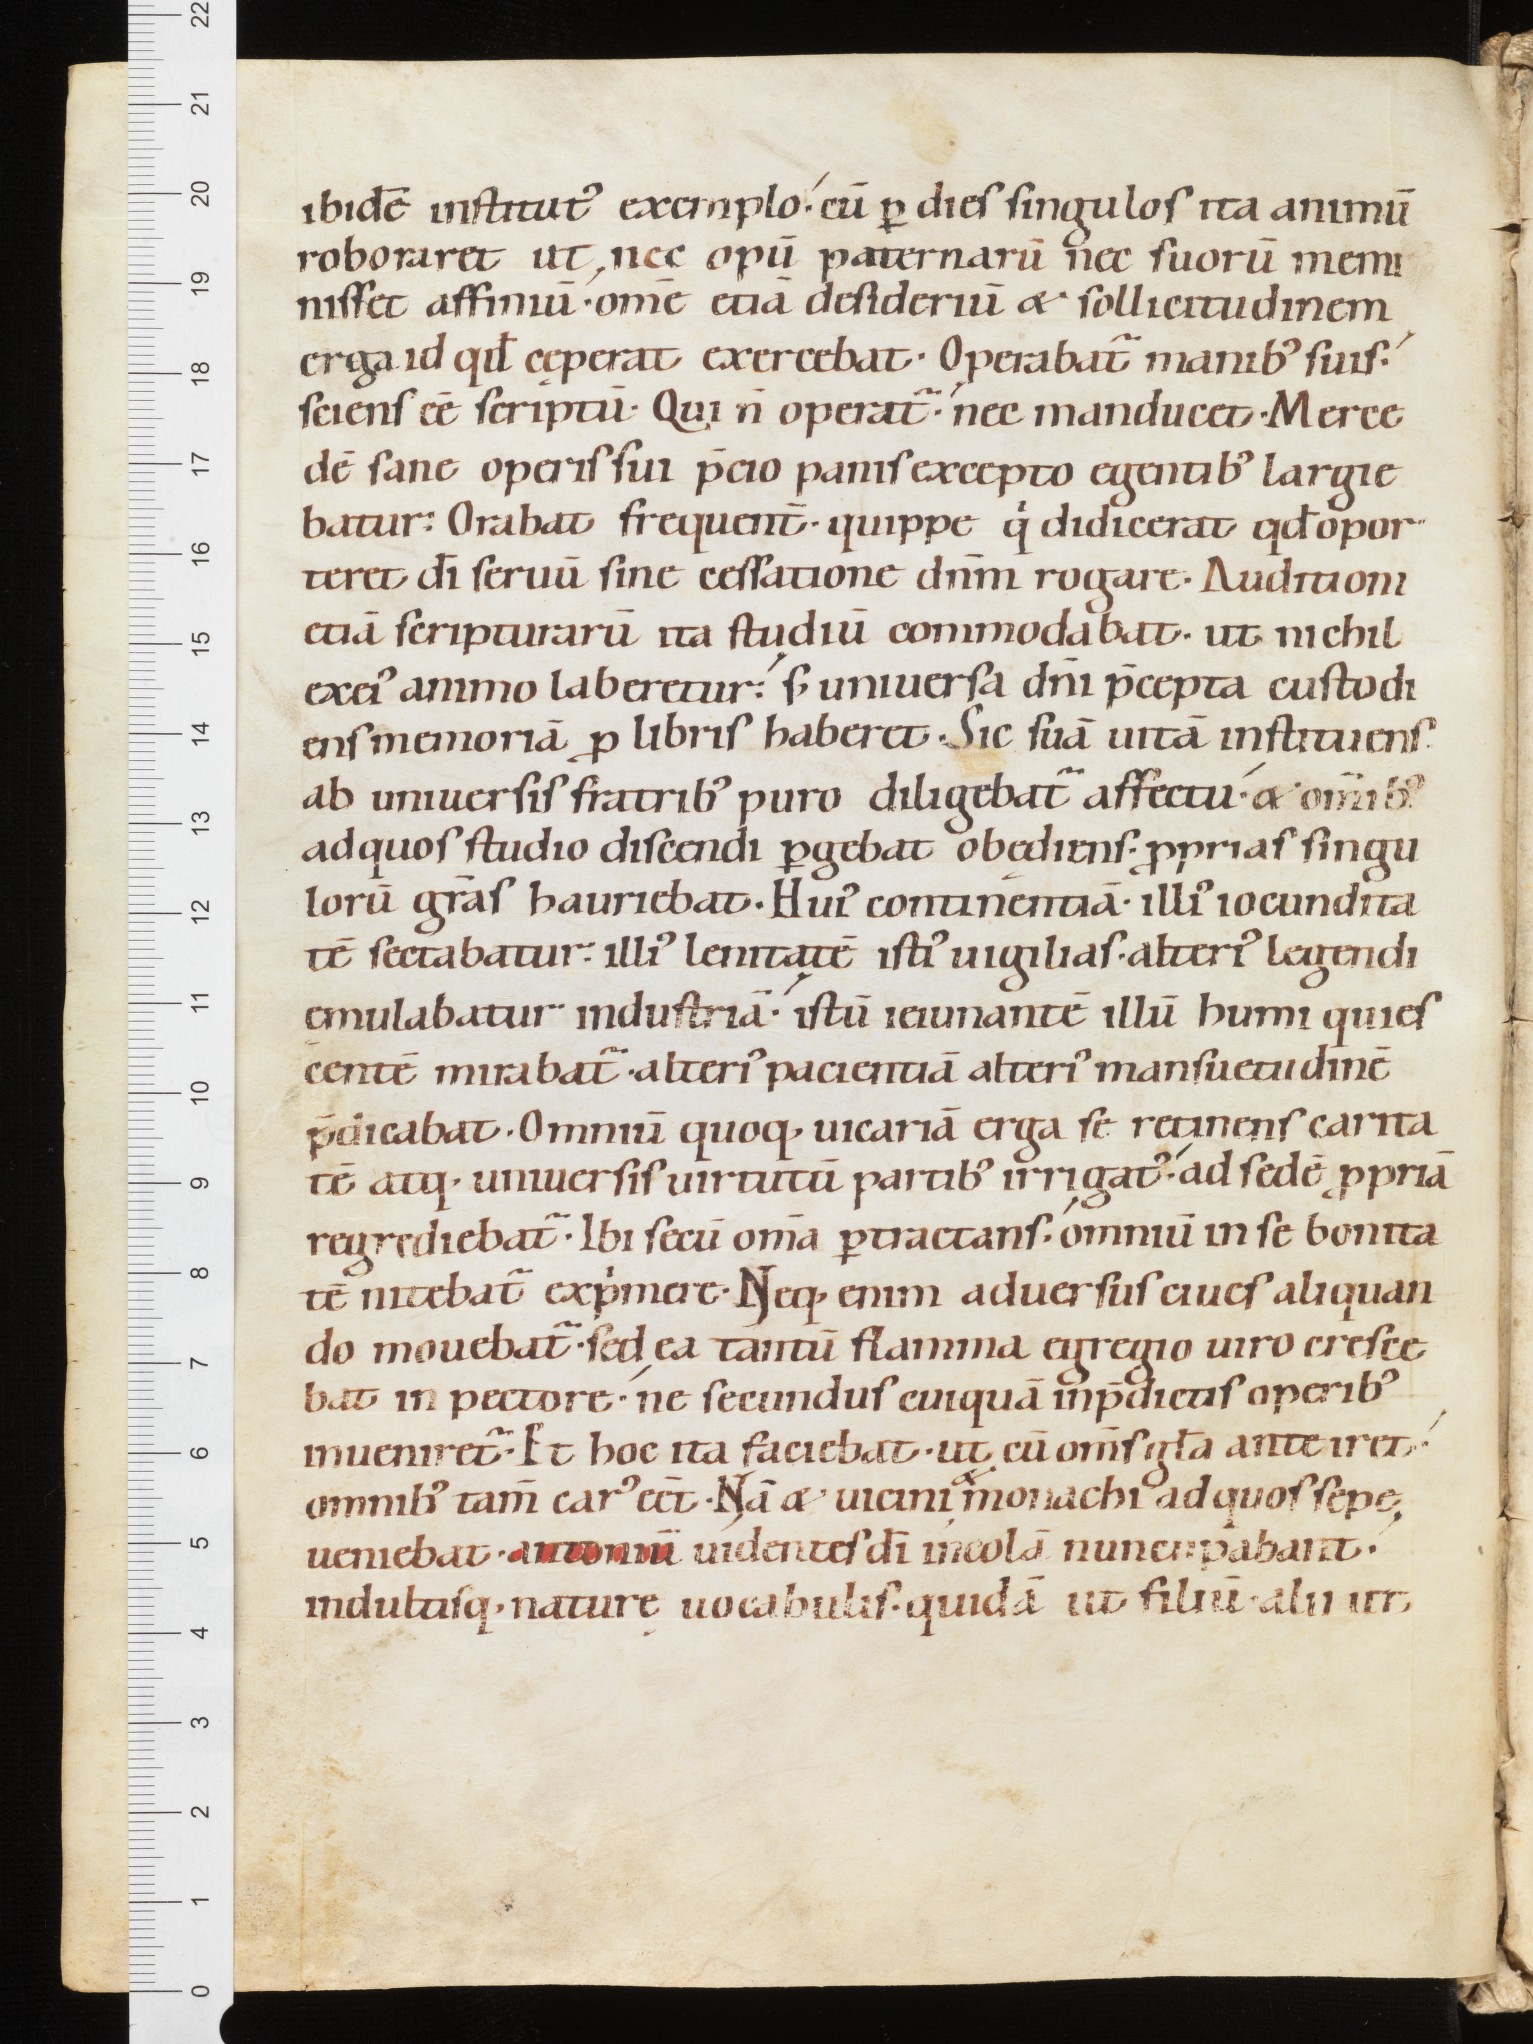 ibidē institut᾿ exemplo.́ cū ꝑ dies singulos ita animū
roboraret ut nec opū paternarū nec suorū memi
nisset affiniū.́ om̄e etiā desideriū & sollicitudinem
erga id qd̄ cęperat exercebat. Operabat᷑ manib᾿ suis.́
sciens eē scriptū. Qui n̄ operat᷑.́ nec manducet. Merce
dē sane operis sui p̄cio panis excepto egentib᾿ largie
batur: Orabat frequent̄. quippe qͥ didicerat qd̄ opor
teret dī seruū sine cessatione dn̄m rogare. Auditioni
etiā scripturarū ita studiū commodabat. ut nichil
ex ei᾿ animo laberetur:́ s; uniuersa dn̄i p̄cepta custodi
ens memoriā ꝓ libris haberet. Sic suā uitā instituens.
ab uniuersis fratrib᾿ puro diligebat᷑ affectu.́ & om̄ib᾿
ad quos studio discendi ꝑgebat obędiens. ꝓprias singu
lorū gr̄as hauriebat. Hui᾿ continentiā. illi᾿ iocundita
tē sectabatur: illi᾿ lenitatē isti᾿ uigilias. alteri᾿ legendi
emulabatur industriā.́ istū ieiunantē illū humi quies
centē mirabat᷑. alteri᾿ pacientiā alteri᾿ mansuetudinē
p̄dicabat. Omniū quoq; uicariā erga se retinens carita
tē atq; uniuersis uirtutū partib᾿ irrigat᾿.́ ad sedē ꝓpriā
regrediebat᷑. Ibi secū om̄a ꝑtractans.́ omniū in se bonita
tē nitebat᷑ expͥmere. Neq; enim aduersus ciues aliquan
do mouebat᷑. sed ea tantū flamma egregio uiro cresce
bat in pectore.́ ne secundus cuiquā in p̄dictis operib᾿
inueniret᷑. Et hoc ita faciebat. ut cū om̄s gl̄a ante iret.́
omnib᾿ tam̄ car᾿ eēt. Nā & uicini & monachi ad quos sepe
ueniebat. antoniū uidentes dī incolā nuncupabant.́
indultisq; naturę uocabulis. quidā ut filiū. alii ut